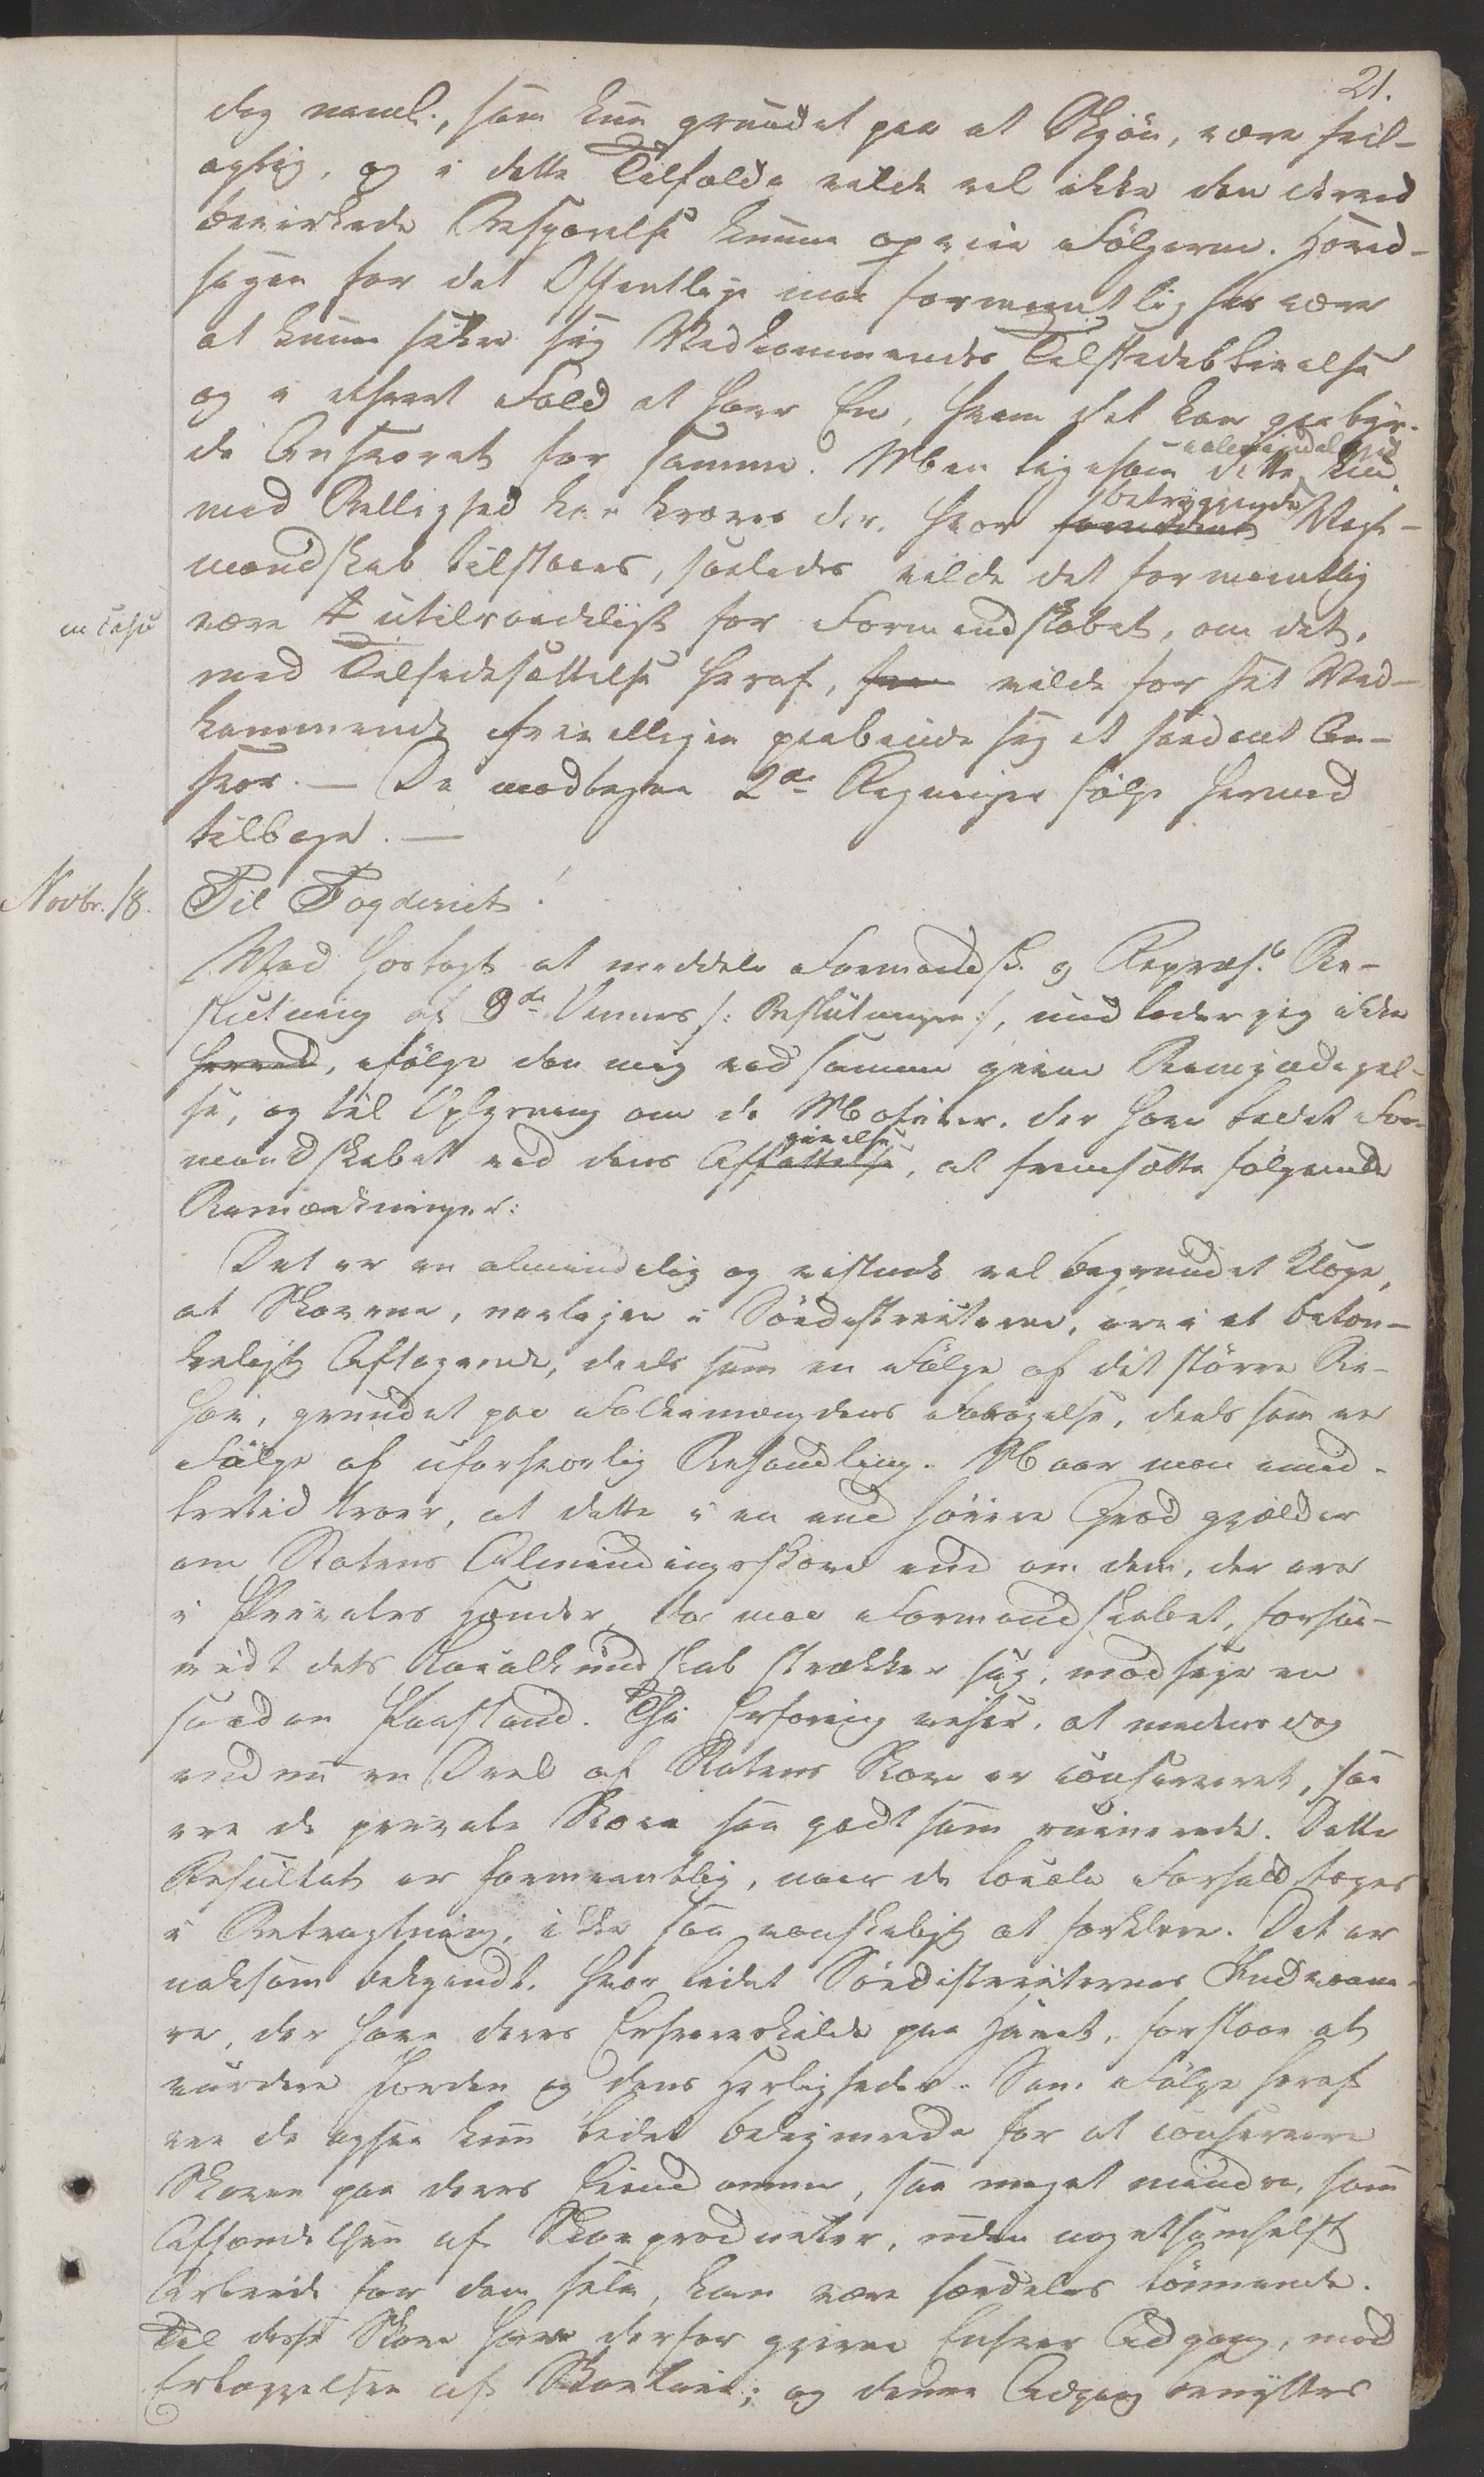 21.
dog neml., som kun grundet paa et Skjøn, være feil-
agtig, og i dette Tilfælde vilde vel ikke den derved
bevirkede Besparelse kunne opveie Følgerne. Hoved-
sagen for det Offentlige maa formeentlig her være
at kunne sikre sig Vedkommendes Tilstedeblivelse
og i ethvert Fald at have En, hvem det kan paabyr-
de Ansvaret for samme. Men ligesom dette kun
med Billighed kan kræves der, hvor betryggende Vagt-
mandskab tilstaaes, saaledes vilde det formeentlig
være utilraadeligt for Formandskabet, om det,
in casu
med Tilsidesættelse heraf, vilde for sit Ved-
kommende frivilligen paabinde sig et saadant An-
svar. — De modtagne 2de Regninger følge hermed
tilbage. —
Novbr. 18.
Til Fogderiet!
Ved Hoslagt at meddele Formandsk. og Repræs. Be-
slutning af 3die /: Beslutningen :/, undlader jeg ikke
herved, ifølge den mig ved samme givne Bemyndigel-
se, og til Oplysning om de Motiver, der have ledet For-
mandskabet ved dens Afgivelse, at fremsætte følgende
Bemærkninger:
Det er en almindelig og vistnok vel begrundet Klage,
at Skovene, navnligen i Sødistricterne, ere i et betæn-
keligt Aftagende, deels som en Følge af det større Be-
hov, grundet paa Folkemængdens Forøgelse, deels som en
Følge af uforsvarlig Behandling. Naar man imid-
lertid troer, at dette i en end høiere Grad gjælder
om Statens Almindingsskove end om dem, der ere
i Privates Hænder, da maa Formandskabet, forsaa-
vidt dets Localkundskab strækker sig, modsige en
saadan Paastand. Thi Erfaring viser, at medens dog
endnu en Deel af Statens Skove er conserveret, saa
ere de private Skove saa godt som ruinerede. Dette
Resultat er formeentlig, naar de locale Forhold tages
i Betragtning, ikke saa vanskeligt at forklare. Det er
noksom bekjendt, hvor lidet Sødistricternes Indvaane-
re, der have deres Erhvervskilde paa Havet, forstaae at
vurdere Jorden og dens Herligheder. Som Følge heraf
ere de ogsaa kun lidet bekymrede for at conservere
Skoven paa deres Eiendomme, saa meget mindre, som
Afhændelsen af Skovproducter, uden nogetsomhelst
Arbeide for dem selv, kan være særdeles lønnende.
Til disse Skove have derfor gjerne Enhver Adgang, mod
Erlæggelsen af Skovleie; og denne Adgang benyttes